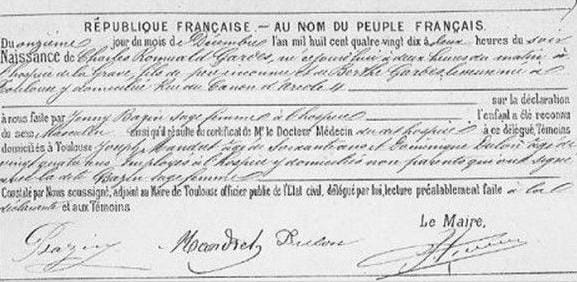 RÉPUBLIQUE FRANÇAISE. — AU NOM DU PEUPLE FRANÇAIS.
Du onzième jour du mois de Décembre l'an mil huit cent quatre vingt dix à deux heures du soir
Naissance de Charles Romuald Gardès, né aujourd'hui à deux heures du matin à
l'hospice de la Grave, fils de père inconnu et de Berthe Gardes, lemême à
Toulouse y domiciliée Rue du Canon d'Arcole 4
sur la déclaration
à nous faite par Jenny Bazin sage femme à l'hospice l'enfant a été reconnu
du sexe Masculin ainsi qu'il résulte du certificat de Mr le Docteur Médecin du dit hospice à ce délégué, Témoins
domiciliés à Toulouse Joseph Mandret âgé de soixante ans et Dominique Dulon âgé de
vingt quatre ans, Employés à l'hospice y domiciliés non parents qui ont signé
avec la dite Bazin sage femme
Constaté par Nous soussigné, adjoint au Maire de Toulouse officier public de l'Etat civil, délégué par lui, lecture préalablement faite à la
déclarante et aux Témoins
Le Maire,
Bazin Mandret Dulon